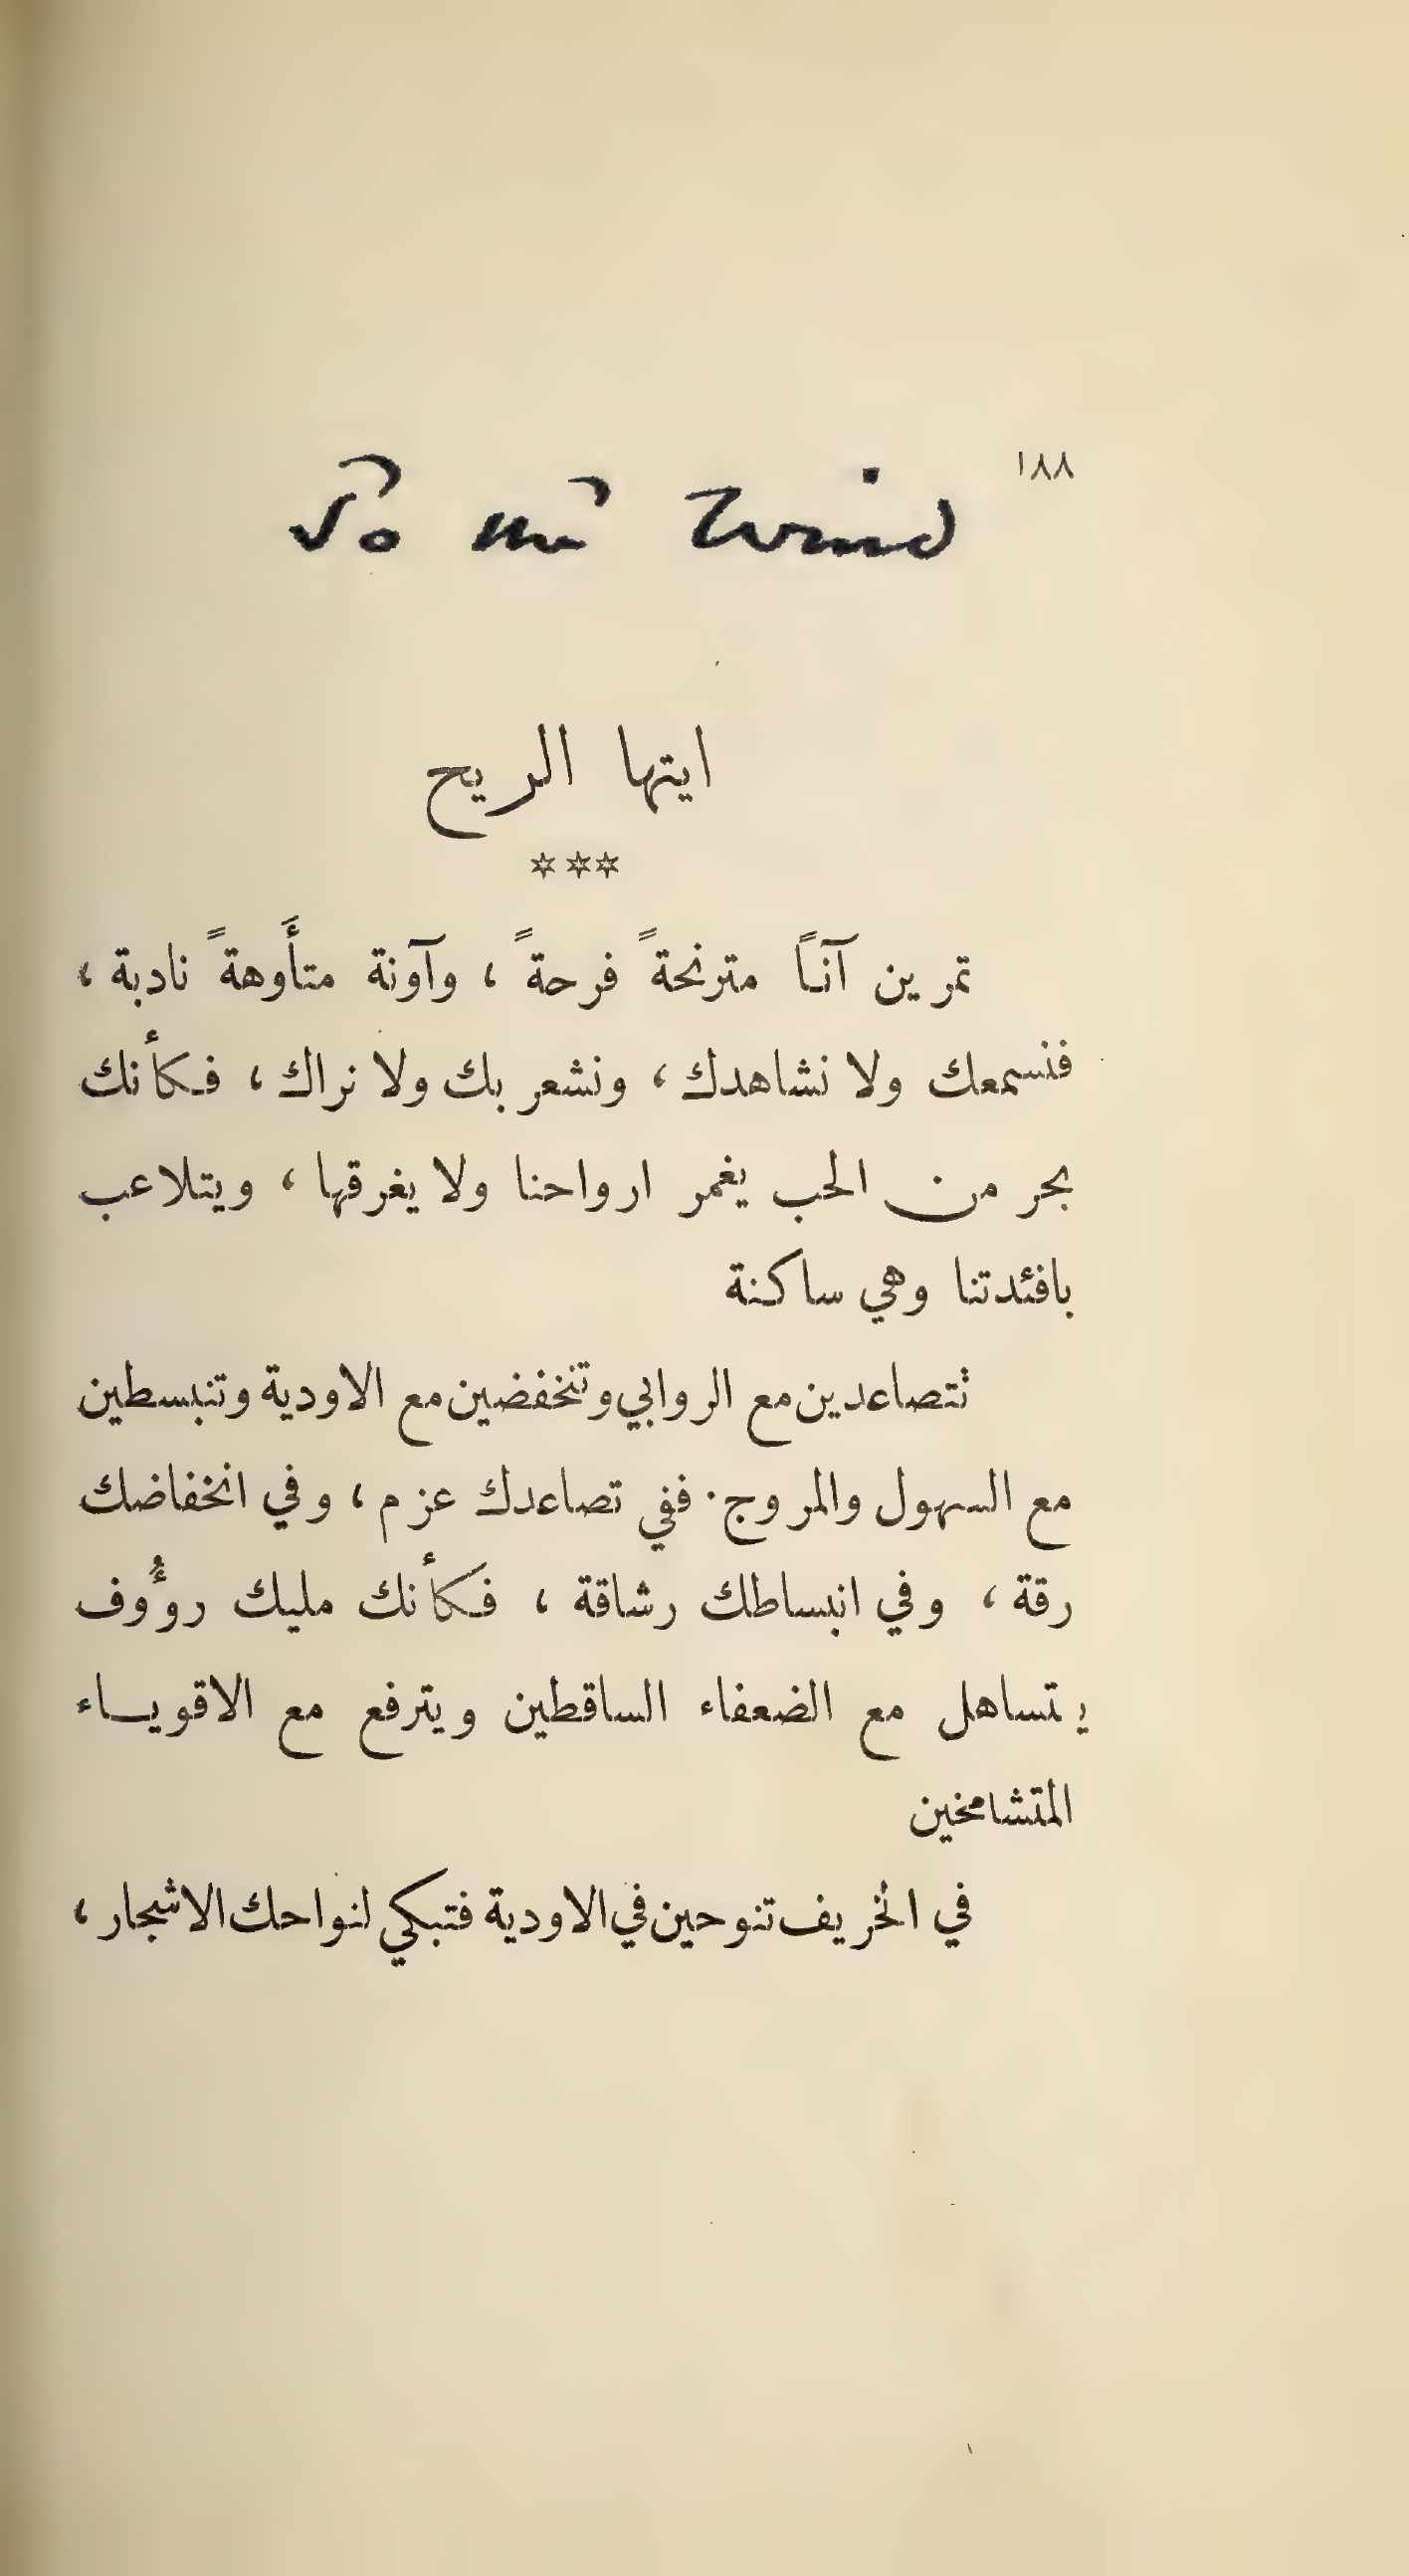 ١٨٨
To the Wind
ايتها الريح
***
تمرين آناً مترنحةً فرحةً ، وآونة متأَوهةً نادبة ،
فنسمعك ولا نشاهدك ، ونشعر بك ولا نراك ، فكأنك
بحر من الحب يغمر ارواحنا ولا يغرقها ، ويتلاعب
بافئدتنا وهي ساكنة
تتصاعدين مع الروابي وتنخفضين مع الاودية وتنبسطين
مع السهول والمروج . ففي تصاعدك عزم ، وفي انخفاضك
رقة ، وفي انبساطك رشاقة ، فكأنك مليك روءُوف
يتساهل مع الضعفاء الساقطين ويترفع مع الاقويـاء
المتشامخين
في الخريف تنوحين في الاودية فتبكي لنواحك الاشجار ،